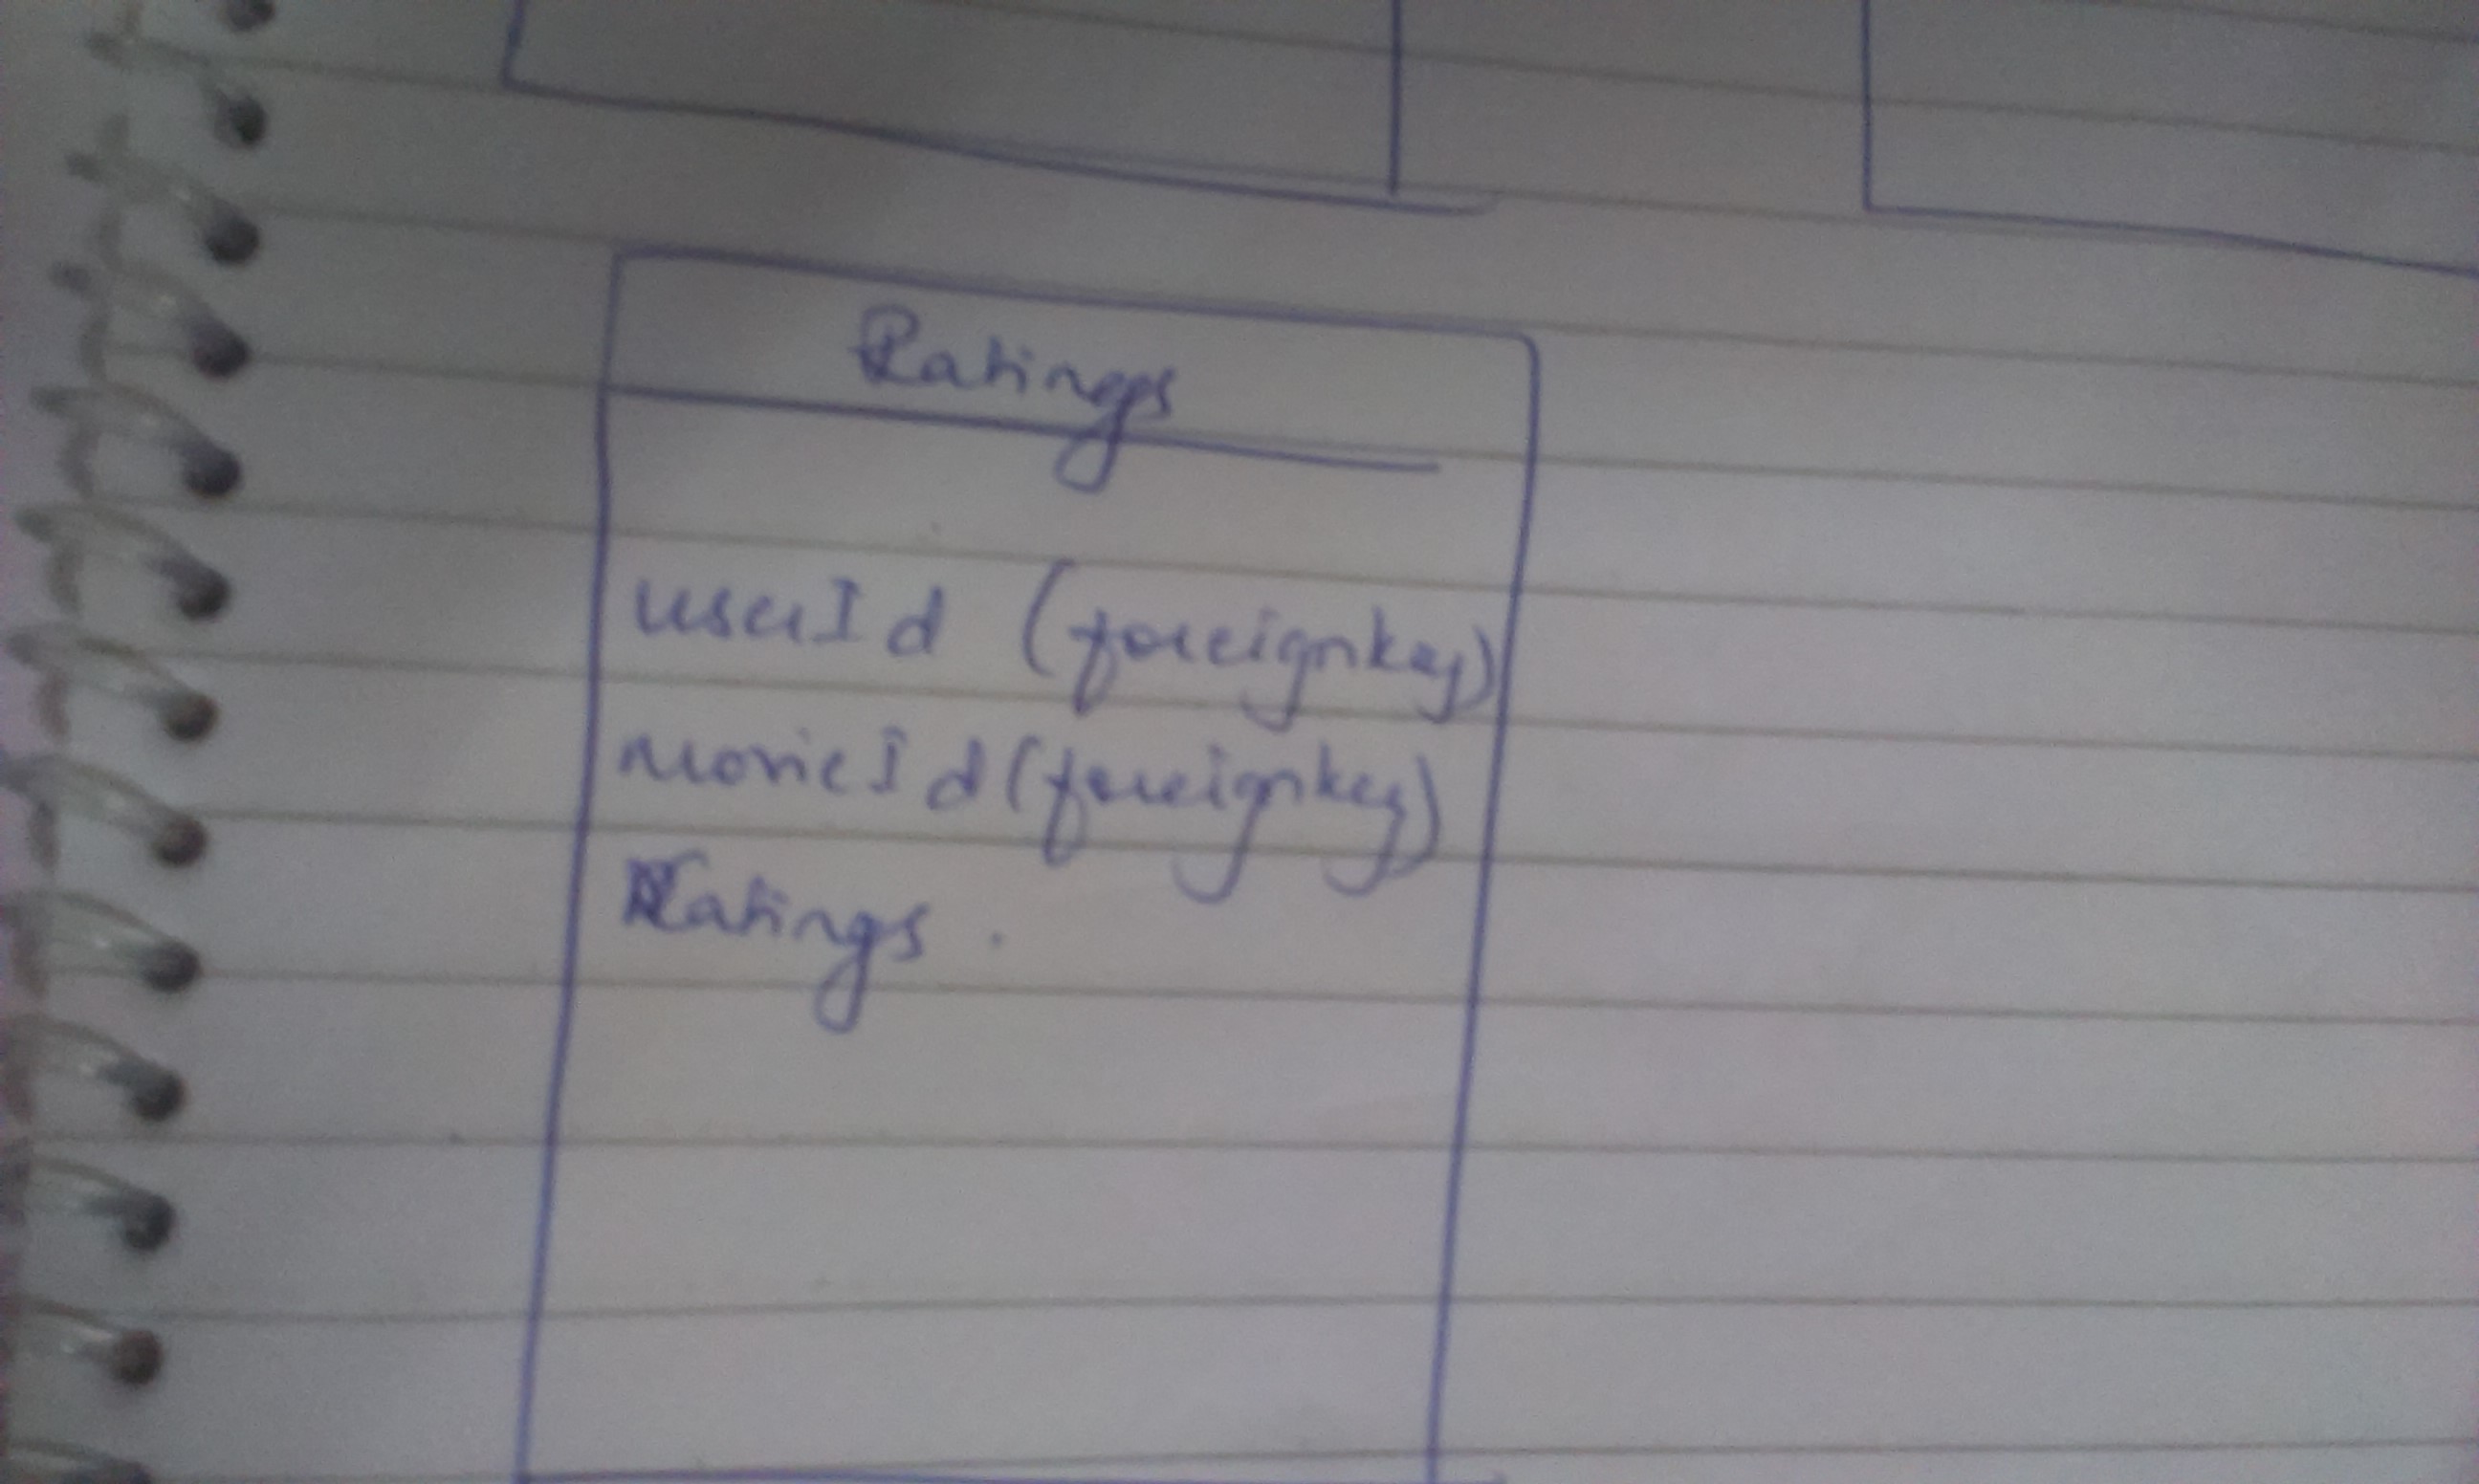 Ratings
userId (foreignkey)
movieId (foreignkey)
Ratings .